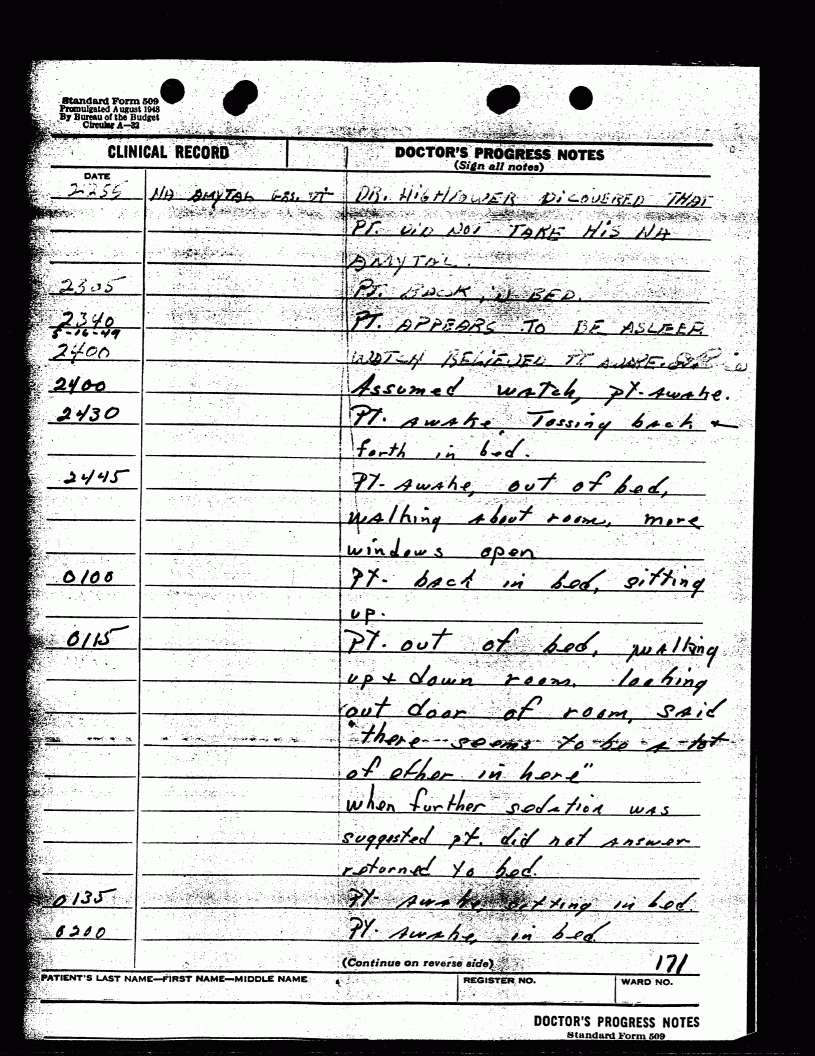 Standard Form 509
Promulgated August 1948
By Bureau of the Budget
Circular A—32
CLINICAL RECORD
DOCTOR'S PROGRESS NOTES
(Sign all notes)
DATE
2255 NA AMYTAL GRS. DR. HIGHTOWER DICOVERED THAT
PT. DID NOT TAKE HIS NA
AMYTAL.
2305 PT. BACK IN BED.
2340 PT. APPEARS TO BE ASLEEP
5-16-49
2400 WATCH RELIEVED PT AWAKE.
2400 Assumed watch, pt-awake.
2430 PT. awake, Tossing back +
forth in bed.
2445 PT- awake, out of bed,
walking about room, more
windows open
0100 PT- back in bed, sitting
up.
0115 PT. out of bed, walking
up + down room. looking
out door of room, said
"there seems to be a lot
of ether in here"
when further sedation was
suggested pt. did not answer
returned to bed.
0135 PT- awake, sitting in bed.
0200 PT. awake, in bed
(Continue on reverse side) 171
PATIENT'S LAST NAME—FIRST NAME—MIDDLE NAME REGISTER NO. WARD NO.
DOCTOR'S PROGRESS NOTES
Standard Form 509